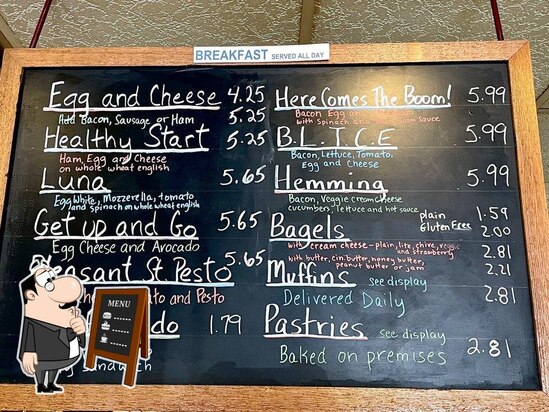 BREAKFAST SERVED ALL DAY
Egg and Cheese 4.25
Add Bacon, Sausage or Ham 5.25
Healthy Start 5.25
Ham, Egg and Cheese
on whole wheat english
Luna 5.65
Egg White, Mozzerella, tomato
and Spinach on whole wheat english
Get up and Go 5.65
Egg Cheese and Avocado
easant St. Pesto 5.65
to and Pesto
do 1.79
Sandwich
Here Comes The Boom! 5.99
Bacon Egg and
with Spinach and Sauce
B.L.T.C.E 5.99
Bacon, Lettuce, Tomato,
Egg and Cheese
Hemming 5.99
Bacon, Veggie cream cheese
cucumbers, lettuce and hot sauce
Bagels plain 1.59
Gluten Free 2.00
with cream cheese - plain, lite, chive, veggie
and strawberry 2.81
with butter, cin. butter, honey butter, 2.21
peanut butter or jam
Muffins see display
Delivered Daily 2.81
Pastries see display
Baked on premises 2.81
MENU